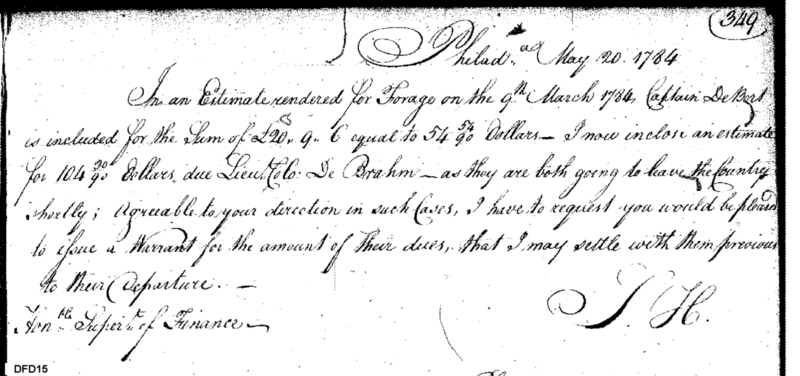 349
Philad.ª May 20. 1784
In an Estimate rendered for Forage on the 9.th March 1784, Captain De Bert
is included for the Sum of £20.. 9.. 6 equal to 54 54/90 Dollars — I now inclose an estimate
for 104 30/90 Dollars due Lieu.t Colo: De Brahm — as they are both going to leave the Country
shortly; Agreeable to your direction in such Cases, I have to request you would be pleased
to issue a Warrant for the amount of their dues, that I may settle with them previous
to their Departure. —
Hon.ble Superi.t of Finance —
J. H.
DFD15